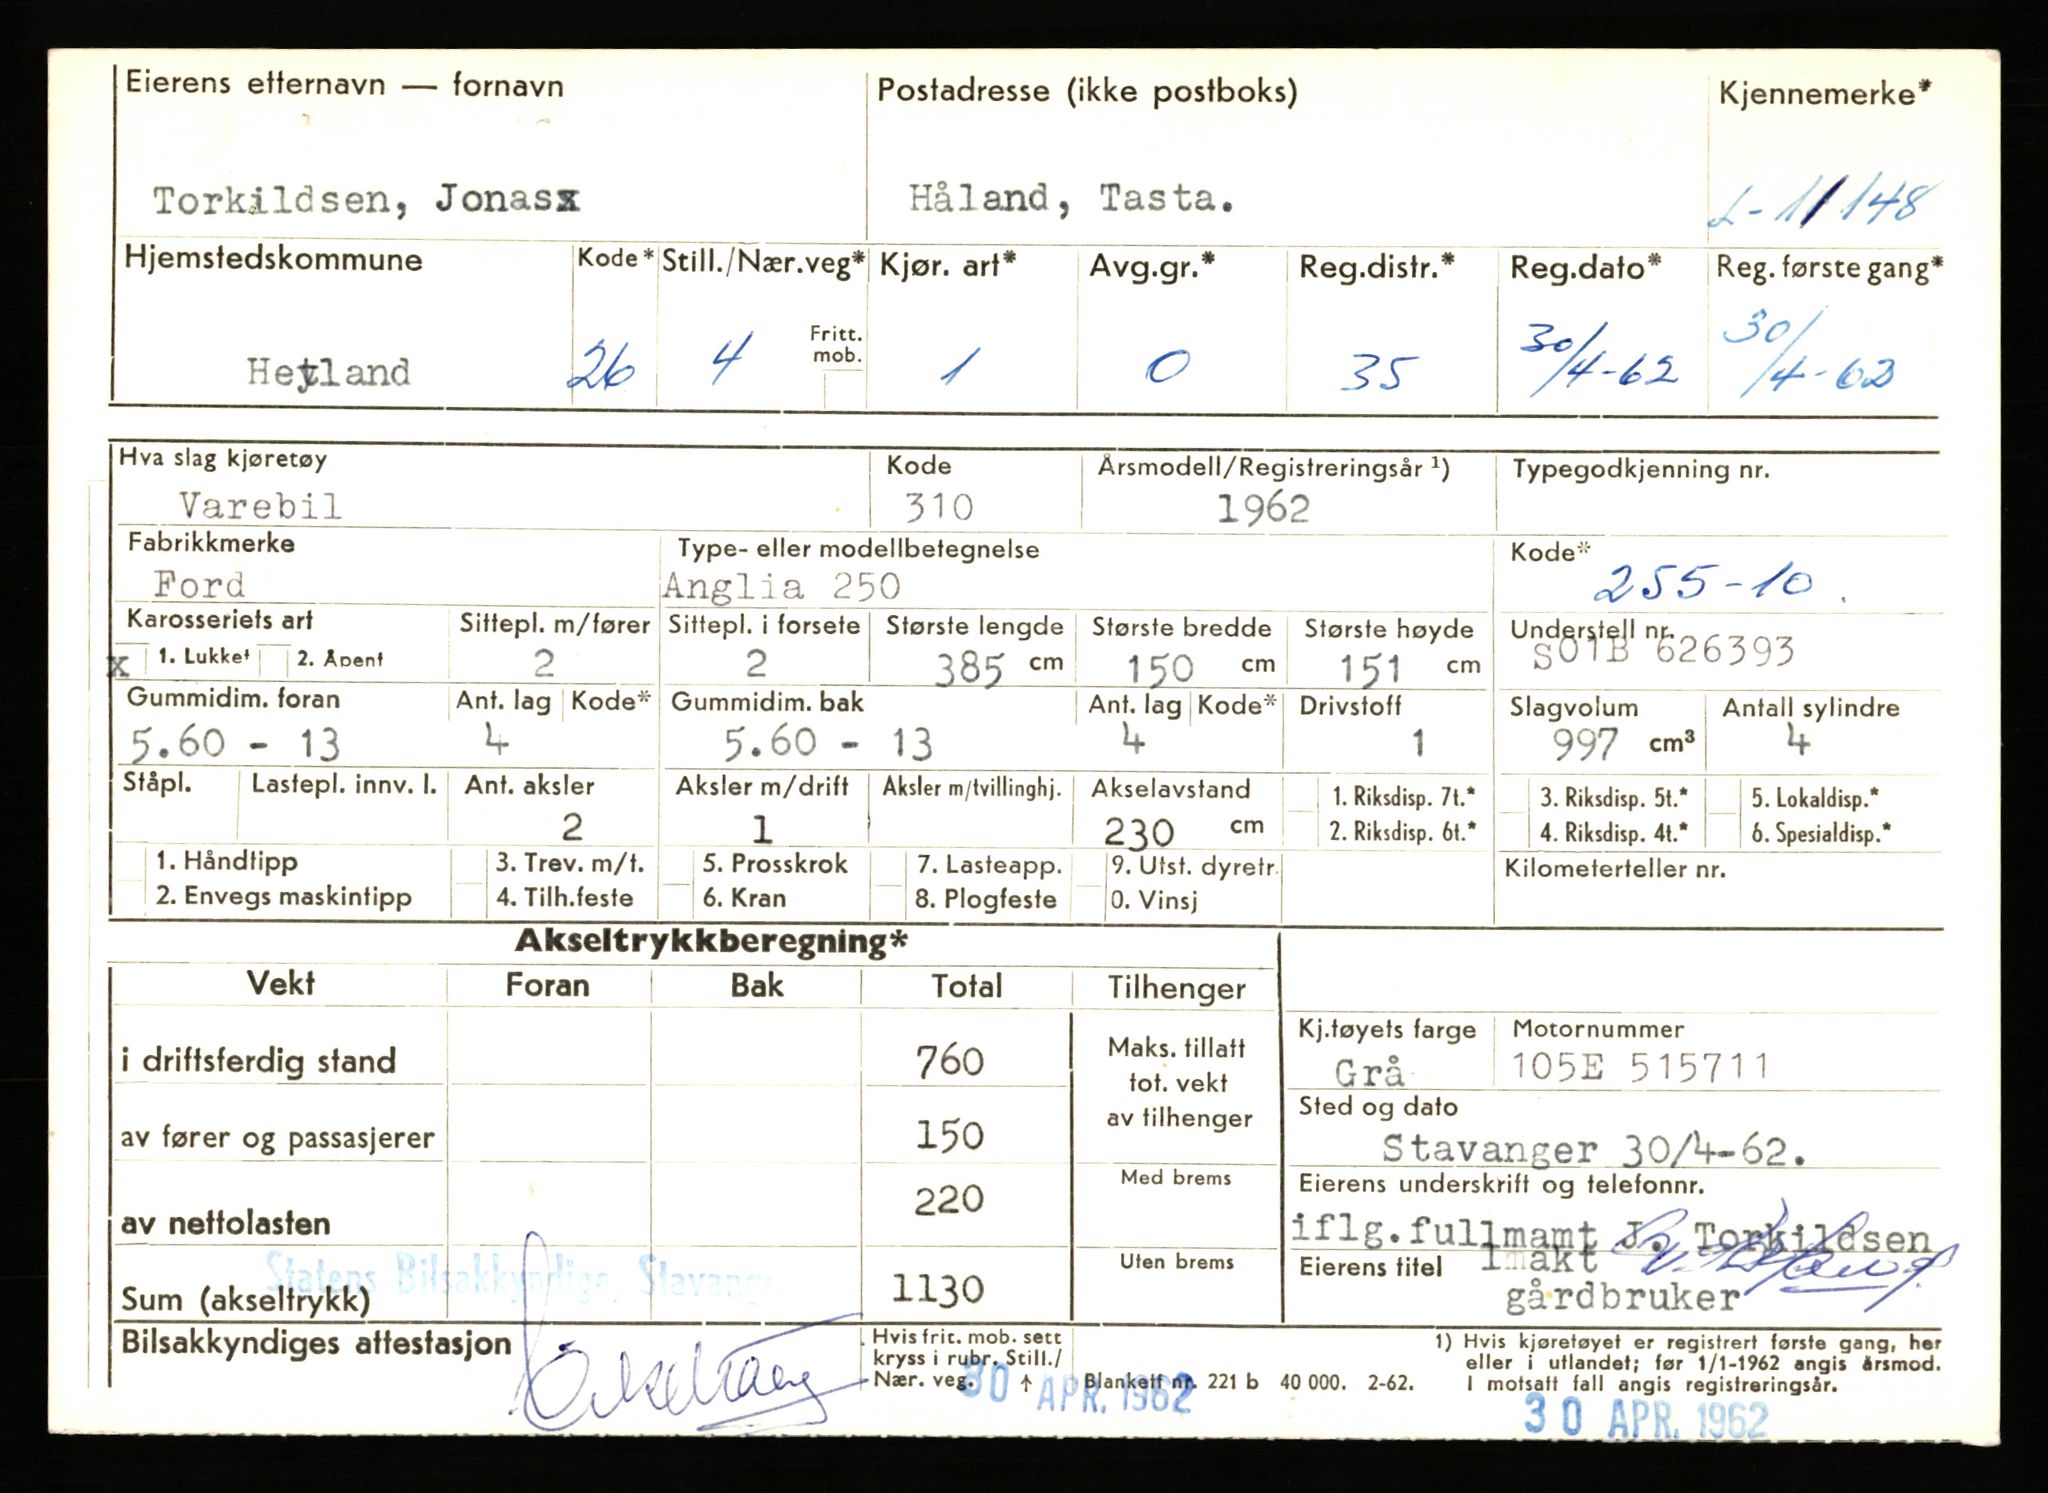 Eierens etternavn — fornavn Postadresse (ikke postboks) Kjennemerke*
Torkildsen, Jonasx Håland, Tasta. L-11148
Hjemstedskommune Kode* Still./Nær.veg* Kjør. art* Avg.gr.* Reg.distr.* Reg.dato* Reg. første gang*
Fritt. mob.
Hetland 26 4 1 0 35 30/4-62 30/4-62
Hva slag kjøretøy Kode Årsmodell/Registreringsår 1) Typegodkjenning nr.
Varebil 310 1962
Fabrikkmerke Type- eller modellbetegnelse Kode*
Ford Anglia 250 255-10.
Karosseriets art Sittepl. m/fører Sittepl. i forsete Største lengde Største bredde Største høyde Understell nr.
x 1. Lukket 2. Åpent 2 2 385 cm 150 cm 151 cm S01B 626393
Gummidim. foran Ant. lag Kode* Gummidim. bak Ant. lag Kode* Drivstoff Slagvolum Antall sylindre
5.60 - 13 4 5.60 - 13 4 1 997 cm³ 4
Ståpl. Lastepl. innv. l. Ant. aksler Aksler m/drift Aksler m/tvillinghj. Akselavstand 1. Riksdisp. 7t.* 3. Riksdisp. 5t.* 5. Lokaldisp.*
2 1 230 cm 2. Riksdisp. 6t.* 4. Riksdisp. 4t.* 6. Spesialdisp.*
1. Håndtipp 3. Trev. m/t. 5. Prosskrok 7. Lasteapp. 9. Utst. dyretr. Kilometerteller nr.
2. Envegs maskintipp 4. Tilh.feste 6. Kran 8. Plogfeste 0. Vinsj
Akseltrykkberegning*
Vekt Foran Bak Total Tilhenger
i driftsferdig stand 760
Maks. tillatt
tot. vekt
av tilhenger
Kj.tøyets farge Motornummer
Grå 105E 515711
av fører og passasjerer 150
Sted og dato
Stavanger 30/4-62.
av nettolasten 220
Med brems
Eierens underskrift og telefonnr.
iflg.fullmamt J. Torkildsen
Statens Bilsakkyndige, Stavanger
Sum (akseltrykk) 1130
Uten brems
Eierens titel lmakt
gårdbruker
Bilsakkyndiges attestasjon
Hvis frit. mob. sett
kryss i rubr. Still./
Nær. veg. ↑ Blankett nr. 221 b 40 000. 2-62.
1) Hvis kjøretøyet er registrert første gang, her
eller i utlandet; før 1/1-1962 angis årsmod.
I motsatt fall angis registreringsår.
30 APR. 1962
30 APR. 1962